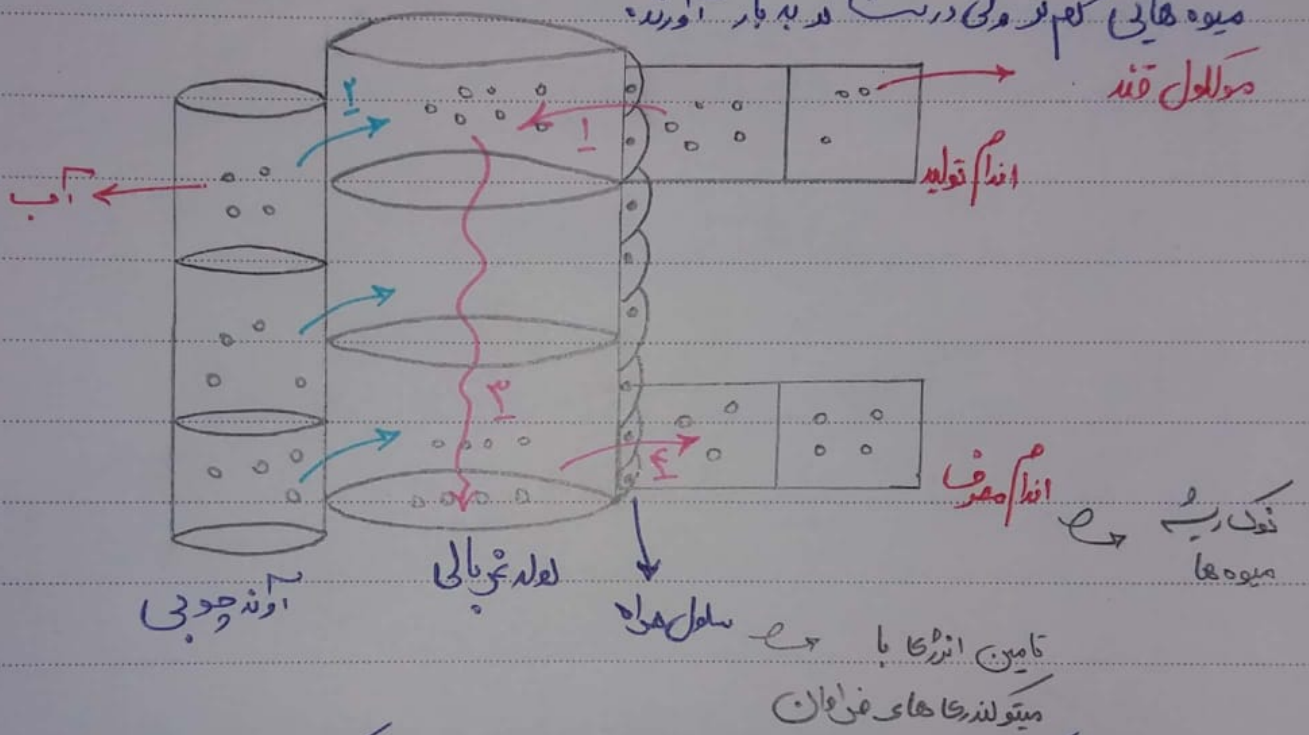 میوه هایی کم تر ولی درشت تر به بار آورند.
مولکول قند
۲
۱
اندام تولید
آب
۳
۴
اندام مصرف
نوک ریشه
میوه ها
لوله غربالی
آوند چوبی
سلول همراه
تامین انرژی با
میتوکندری های فراوان